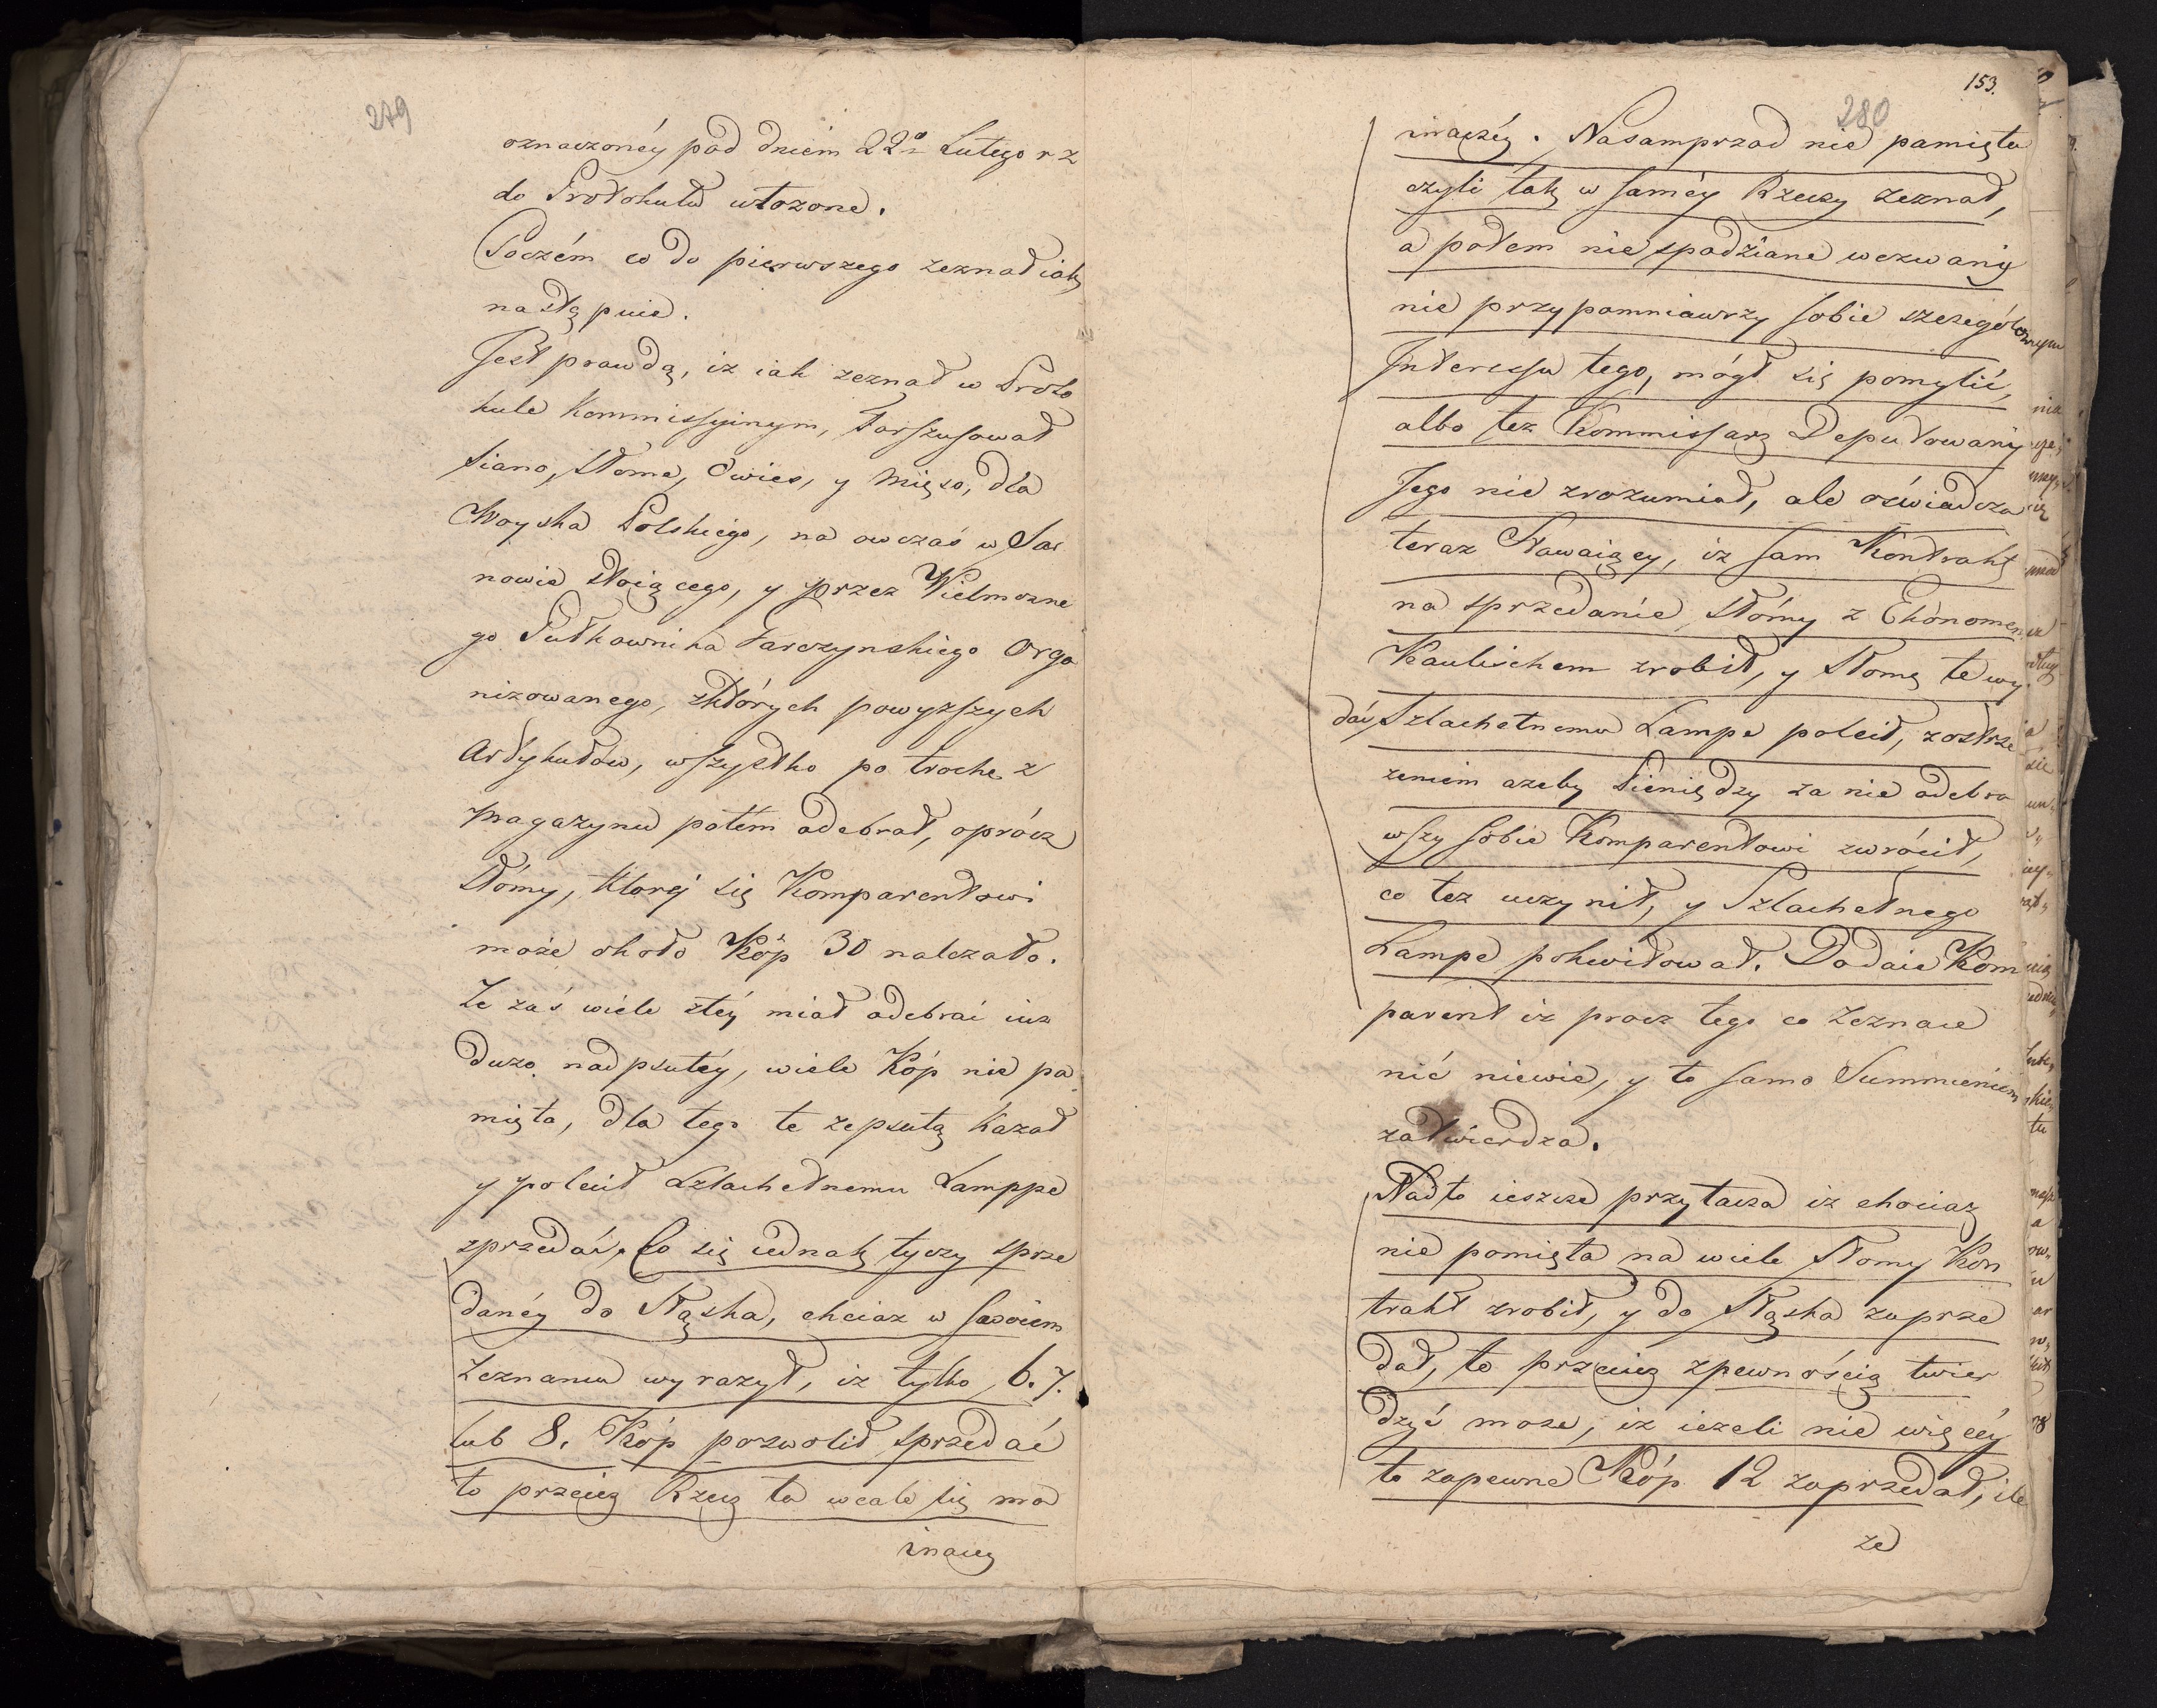 279
oznaczonéy pod dniem 22º Lutego r z
do Protokułu ułozone.
Poczém co do pierwszego zeznał iak
nastąpuie.
Jest prawdą, iz iak zeznał w Proto
kule Kommissyinym, forszusował
siano, słome, Owies, y mięso, dla
Woyska Polskiego, na owczas w Sar
nowie stoiącego, y przez Wielmozne
go Pułkownika Garczynskiego Orga
nizowanego, zktórych powyzszych
Artykułów, wszystko po troche z
Magazynu potém odebrał, oprócz
słómy, ktorej się Komparentowi
może około Kóp 30 nalezało.
Ze zaś wiele ztéy miał odebrać iuz
duzo nadpsutéy, wiele Kóp nie pa
mięta, dla tego te zepsutą kazał
y polecił Szlachetnemu Lamppe
sprzedać, Co się iednak tyczy sprze
danéy do Sląska, chciaz w swoiem
Zeznaniu wyrazył, iz tylko 6. 7.
lub 8. Kóp pozwolił sprzedać
to przeciez Rzecz ta wcale się ma
inaczey
153.
280
inaczéy. Nasamprzod nie pamięta
czyli tak w saméy Rzeczy zeznał,
a potem niespodziane wezwany
nie przypomniawszy sobie szczegółowym
Interessu tego, mógł się pomylić,
albo tez Kommissarz Deputowany
Jego nie zrozumiał, ale oświadcza
teraz Stawaiący, iz sam Kontrakt
na sprzedanie słómy z Ekonomem
Kaulischem zrobił, y słomę te wy
dać Szlachetnemu Lampe polcił, zostrze
zeniem azeby Pieniędzy za nie odebra
wszy sobie Komparentowi zwrócił,
co tez uczynił, y Szlachetnego
Lampe pokwitował. Dodaie Kom
parent iz procz tego co Zeznaie
nić niewie, y to samo Summieniem
zatwierdza.
Nadto ieszcze przytacza iz chociaz
nie pomięta na wiele słomy Kon
trakt zrobił, y do Sląska zaprze
dał, to przeciez zpewnością twier
dzyć moze, iz iezeli nie więcéy
to zapewne Kóp 12 zaprzedał, ile
ze